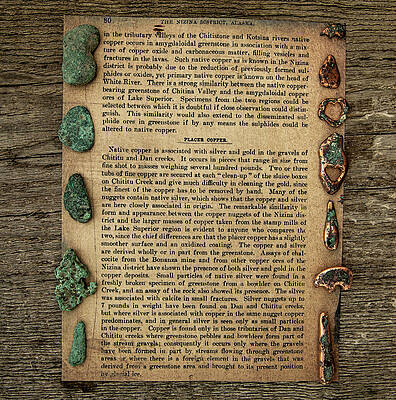 80 THE NIZINA DISTRICT, ALASKA.
in the tributary valleys of the Chitistone and Kotsina rivers native
copper occurs in amygdaloidal greenstone in association with a mix-
ture of copper oxide and carbonaceous matter, filling vesicles and
fractures in the lavas. Such native copper as is known in the Nizina
district is probably due to the reduction of previously formed sul-
phides or oxides, yet primary native copper is known on the head of
White River. There is a strong similarity between the native copper-
bearing greenstone of Chitina Valley and the amygdaloidal copper
ores of Lake Superior. Specimens from the two regions could be
selected between which it is doubtful if close observation could distin-
guish. This similarity would also extend to the disseminated sul-
phide ores in greenstone if by any means the sulphides could be
altered to native copper.
PLACER COPPER.
Native copper is associated with silver and gold in the gravels of
Chititu and Dan creeks. It occurs in pieces that range in size from
fine shot to masses weighing several hundred pounds. Two or three
tubs of fine copper are secured at each "clean-up" of the sluice boxes
on Chititu Creek and give much difficulty in cleaning the gold, since
the finest of the copper has to be removed by hand. Many of the
nuggets contain native silver, which shows that the copper and silver
are here closely associated in origin. The remarkable similarity in
form and appearance between the copper nuggets of the Nizina dis-
trict and the larger masses of copper taken from the stamp mills of
the Lake Superior region is evident to anyone who compares the
two, since the chief differences are that the placer copper has a slightly
smoother surface and an oxidized coating. The copper and silver
are derived wholly or in part from the greenstone. Assays of chal-
cocite from the Bonanza mine and from other copper ores of the
Nizina district have shown the presence of both silver and gold in the
copper deposits. Small particles of native silver were found in a
freshly broken specimen of greenstone from a bowlder on Chititu
Creek, and an assay of the rock also showed its presence. The silver
was associated with calcite in small fractures. Silver nuggets up to
7 pounds in weight have been found on Dan and Chititu creeks,
but where silver is associated with copper in the same nugget copper
predominates, and in general silver is seen only as small particles
in the copper. Copper is found only in those tributaries of Dan and
Chititu creeks where greenstone pebbles and bowlders form part of
the stream gravels; consequently it occurs only where the gravels
have been formed in part by streams flowing through greenstone
areas or where there is a foreign element in the gravels that was
derived from a greenstone area and brought to its present position
by glacial ice.